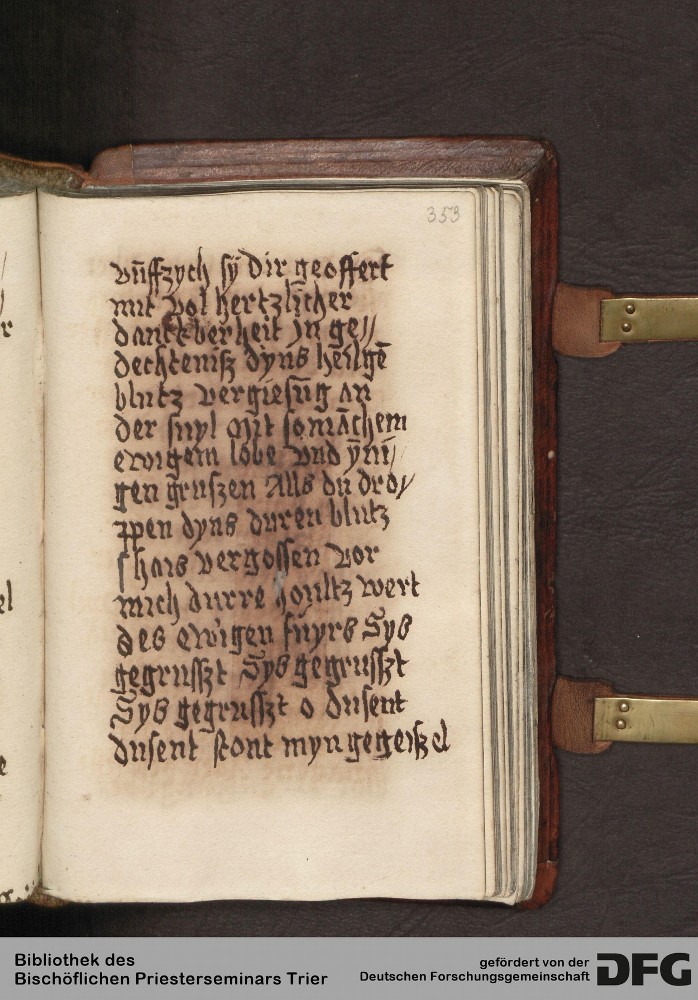 353
vūffzych sÿ dir geoffert
mit vol hertzlicher
danckberheit jn ge//
dechtenisz dyns heilgē
blutz vergiesūg an
der suyl Mit so māchem
ewigem lobe vnd ÿni/
gen gruszen Alls du dro/
ppen dyns duren blutz
hais vergossen vor
mich durre houltz wert
des ewigen fuyrs Sys
gegrusszt Sys gegrusszt
Sys gegrusszt o dusent
dusent stont myn gegeiszel
Bibliothek des
Bischöflichen Priesterseminars Trier
gefördert von der
Deutschen Forschungsgemeinschaft
DFG